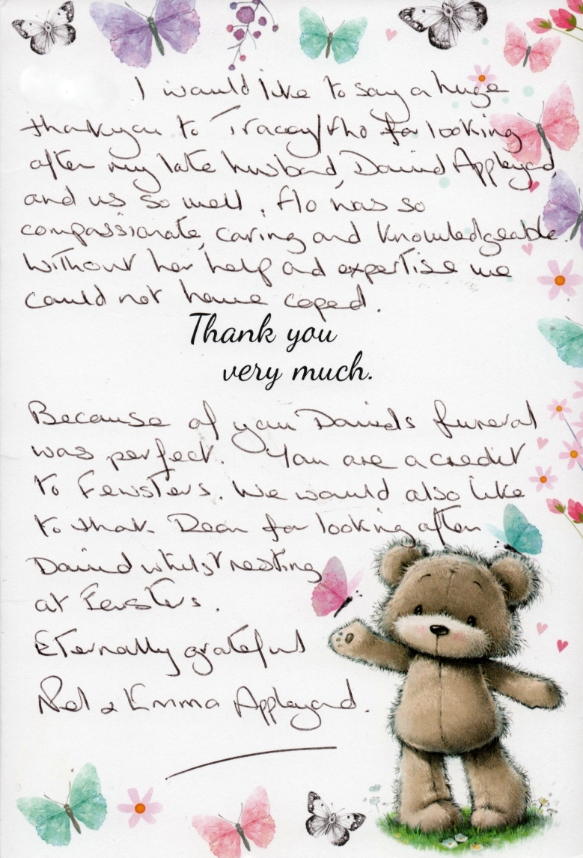 I would like to say a huge
thankyou to Tracey/Flo for looking
after my late husband, David Appleyard
and us so well. Flo was so
compassionate, caring and knowledgeable
without her help and expertise we
could not have coped.
Thank you
very much.
Because of you David's funeral
was perfect. You are a credit
to Fewsters. We would also like
to thank Dean for looking after
David whilst resting
at Fewsters.
Eternally grateful
& Emma Appleyard.